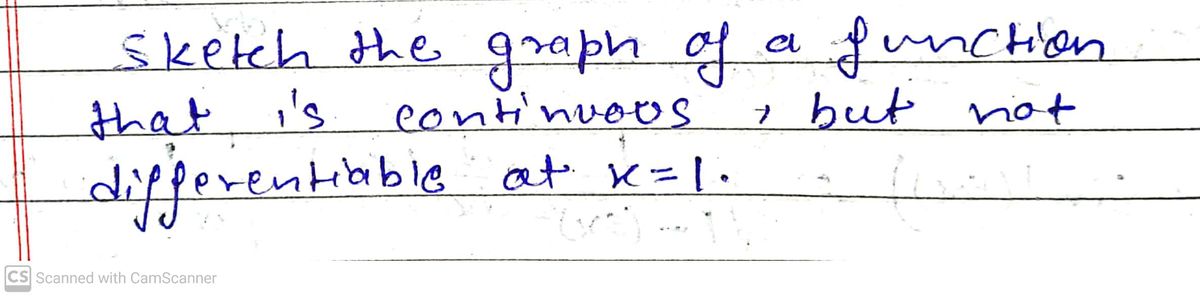 sketch the graph of a function
that is continuous , but not
differentiable at x=1.
CS Scanned with CamScanner